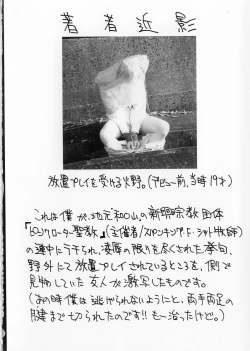 著者近影
放置プレイを受ける火野。(デビュー前、当時19才)
これは僕が、地元和歌山の新興宗教団体
(主催者/スパンキング・F・ファット牧師)
の連中にラチられ、凌辱の限りを尽くされた挙句、
野外にて放置プレイされているところを、側で
見物していた友人が激写したものです。
(あの時僕は逃げられないようにと、両手両足の
腱まで切られたのです!!もー治ったけど。)